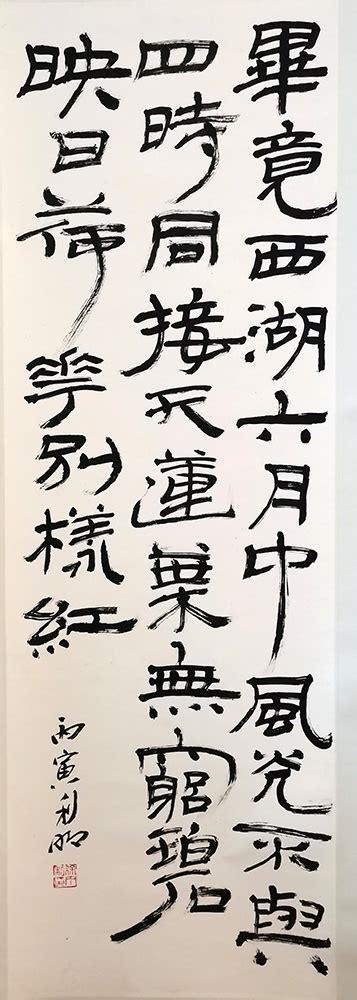 畢竟西湖六月中風光不與
四時同接天蓮葉無窮碧
映日荷花別樣紅
丙寅利明